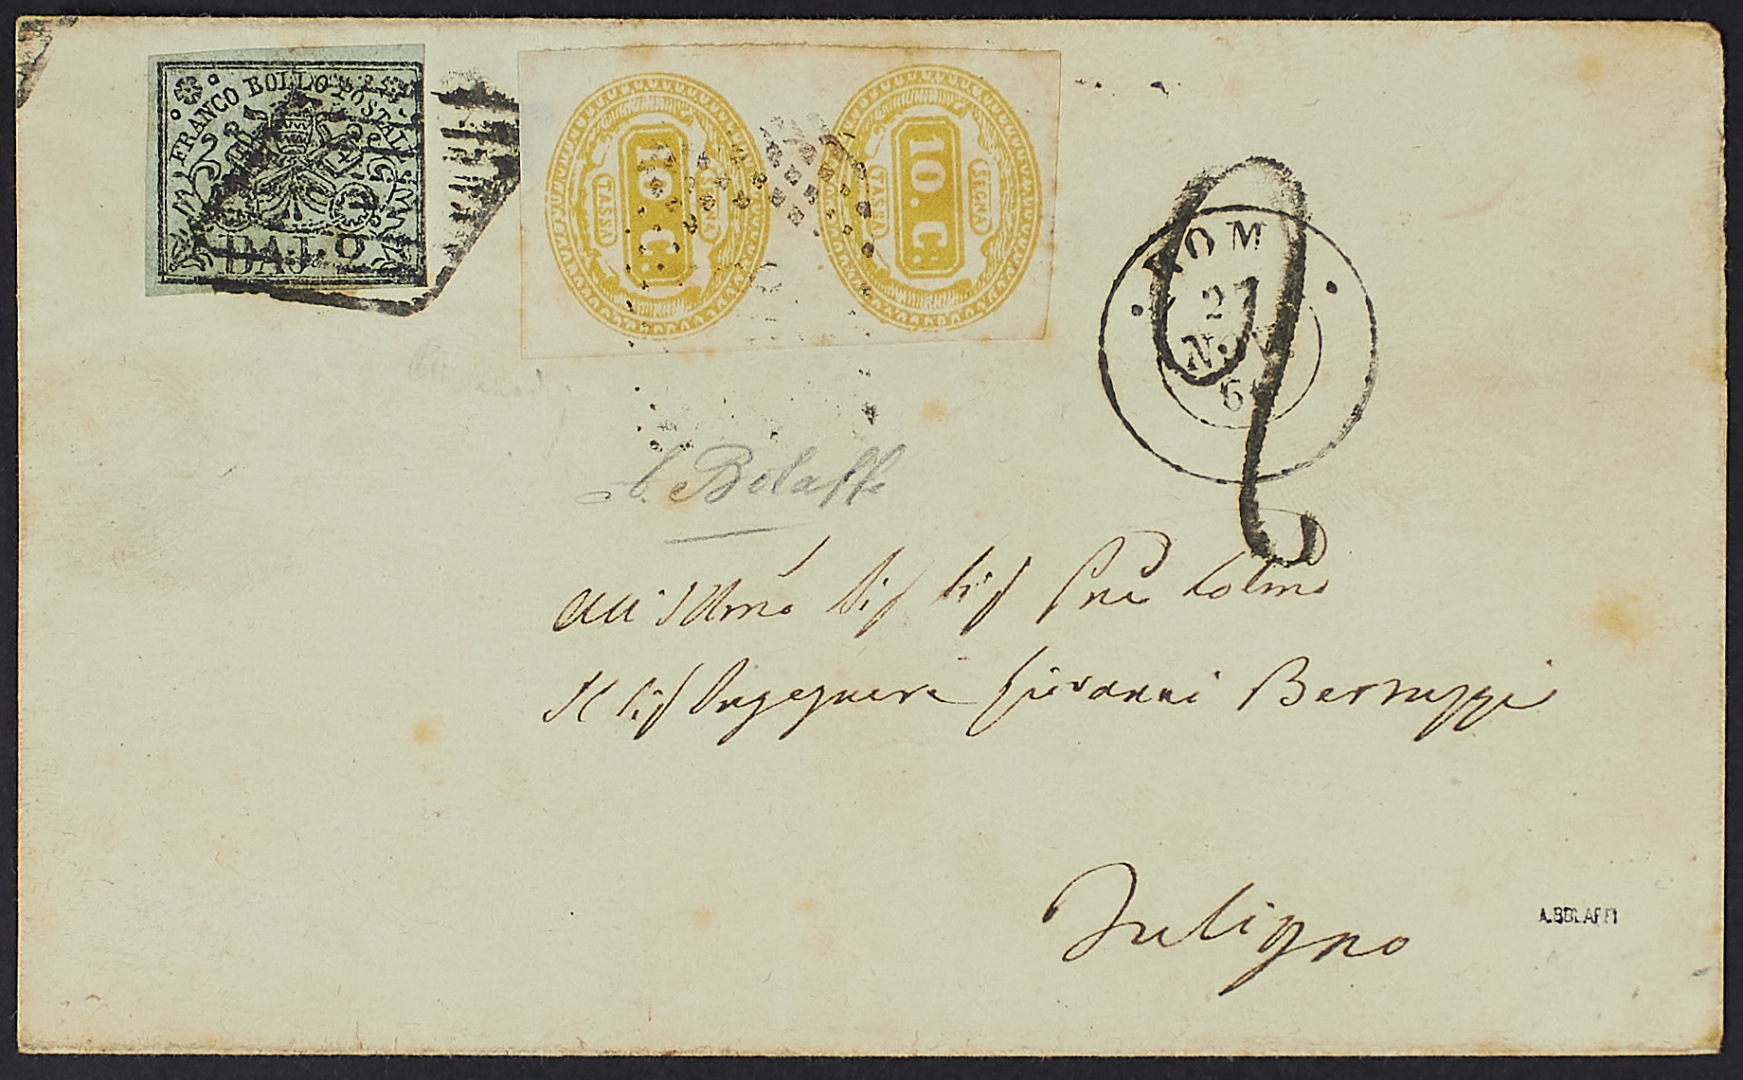 FRANCO BOLLO POSTALE
BAJ. 2
10. C.
SEGNA
TASSA
10. C.
SEGNA
TASSA
ROM
27
NOV
6
2
A. Bolaffi
All'Illmo Sig Sig Pne Colmo
Il Sig Ingegnere Giovanni Bernuzzi
Fuligno
A. BOLAFFI